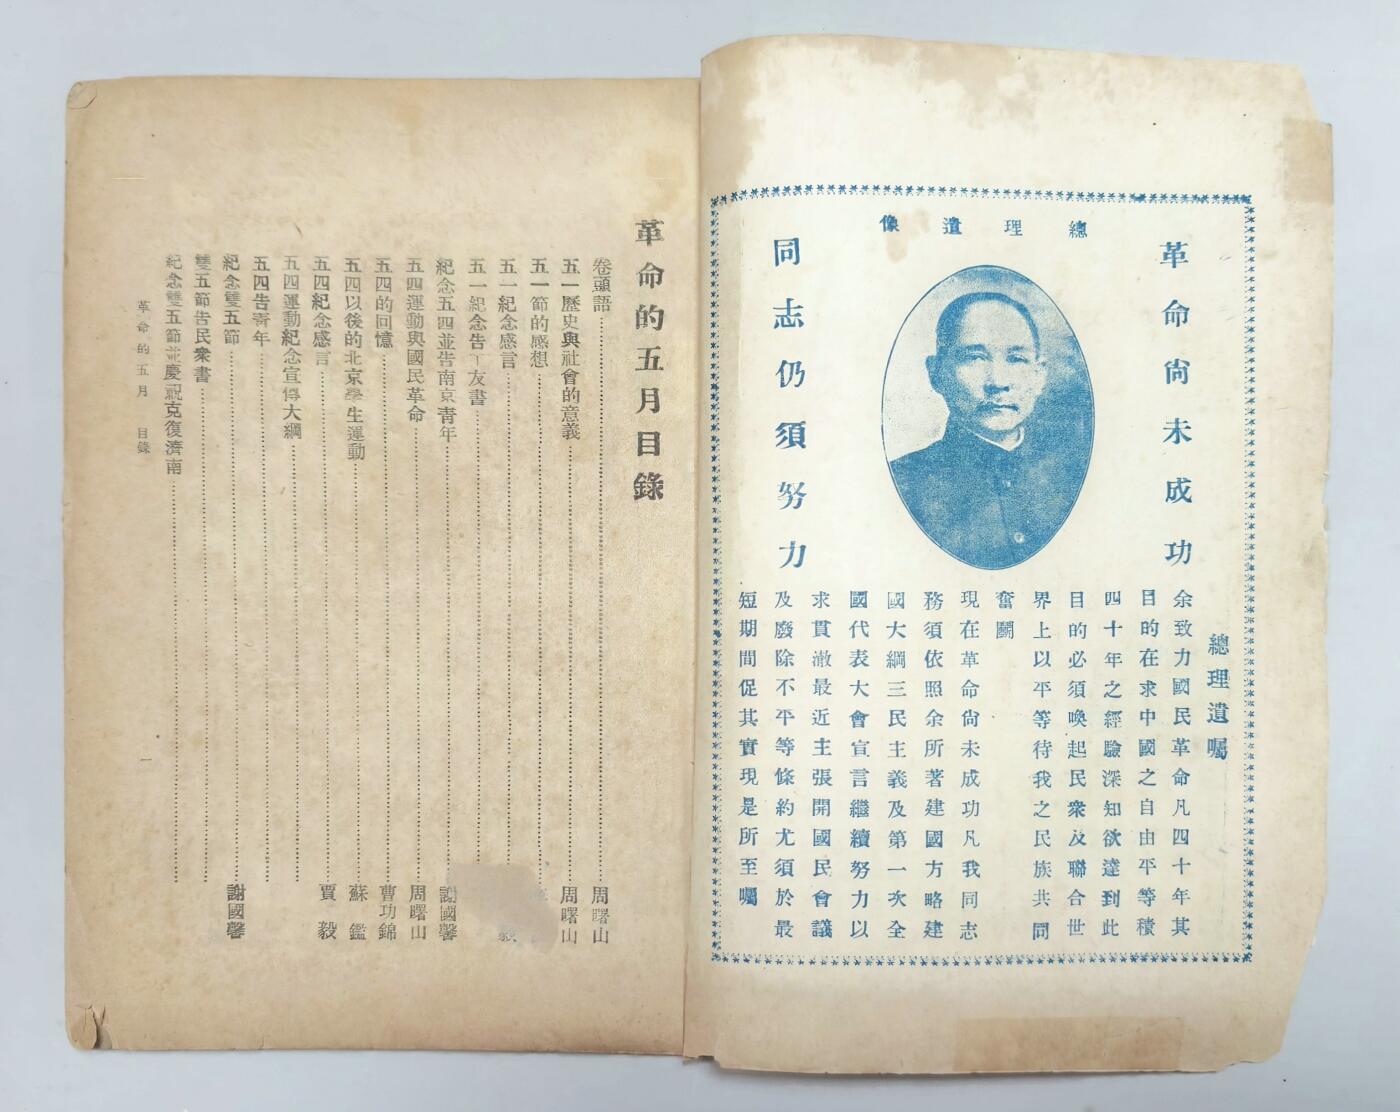 總理遺像
革命尙未成功
同志仍須努力
總理遺囑
余致力國民革命凡四十年其
目的在求中國之自由平等積
四十年之經驗深知欲達到此
目的必須喚起民衆及聯合世
界上以平等待我之民族共同
奮鬭
現在革命尙未成功凡我同志
務須依照余所著建國方略建
國大綱三民主義及第一次全
國代表大會宣言繼續努力以
求貫澈最近主張開國民會議
及廢除不平等條約尤須於最
短期間促其實現是所至囑
革命的五月目錄
卷頭語 周曙山
五一歷史與社會的意義 周曙山
五一節的感想
五一紀念感言 毅
五一紀念告工友書
紀念五四並告南京靑年 謝國馨
五四運動與國民革命 周曙山
五四的回憶 曹功錦
五四以後的北京學生運動 蘇鑑
五四紀念感言 賈毅
五四運動紀念宣傳大綱
五四告靑年
紀念雙五節 謝國馨
雙五節告民衆書
紀念雙五節並慶祝克復濟南
革命的五月 目錄 一